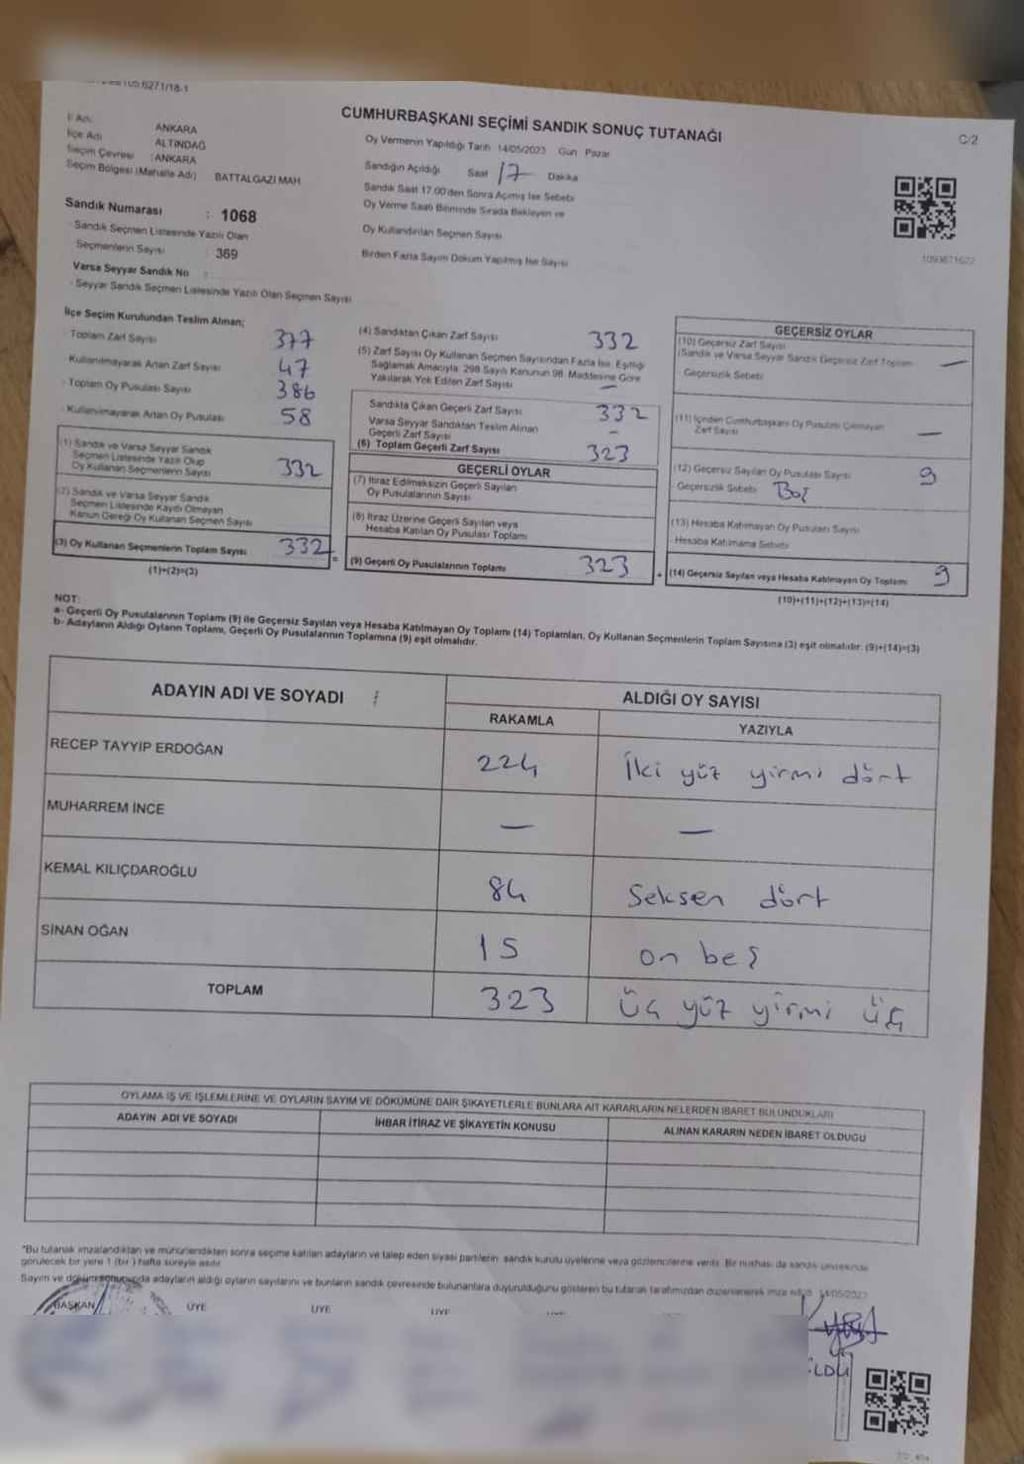 CUMHURBAŞKANI SEÇİMİ SANDIK SONUÇ TUTANAĞI
C/2
İl Adı ANKARA
İlçe Adı ALTINDAĞ
Seçim Çevresi : ANKARA
Seçim Bölgesi (Mahalle Adı) BATTALGAZİ MAH
Sandık Numarası : 1068
Sandık Seçmen Listesinde Yazılı Olan
Seçmenlerin Sayısı : 369
Varsa Seyyar Sandık No :
Seyyar Sandık Seçmen Listesinde Yazılı Olan Seçmen Sayısı
Oy Vermenin Yapıldığı Tarih 14/05/2023 Gün Pazar
Sandığın Açıldığı Saat 17 Dakika
Sandık Saat 17.00'den Sonra Açılmış İse Sebebi
Oy Verme Saati Bitiminde Sırada Bekleyen ve
Oy Kullandırılan Seçmen Sayısı
Birden Fazla Sayım Döküm Yapılmış İse Sayısı
İlçe Seçim Kurulundan Teslim Alınan;
Toplam Zarf Sayısı 377
Kullanılmayarak Artan Zarf Sayısı 47
Toplam Oy Pusulası Sayısı 386
Kullanılmayarak Artan Oy Pusulası 58
(1) Sandık ve Varsa Seyyar Sandık
Seçmen Listesinde Yazılı Olup
Oy Kullanan Seçmenlerin Sayısı 332
(2) Sandık ve Varsa Seyyar Sandık
Seçmen Listesinde Kayıtlı Olmayan
Kanun Gereği Oy Kullanan Seçmen Sayısı
(3) Oy Kullanan Seçmenlerin Toplam Sayısı 332
(1)+(2)=(3)
(4) Sandıktan Çıkan Zarf Sayısı 332
(5) Zarf Sayısı Oy Kullanan Seçmen Sayısından Fazla İse; Eşitliği
Sağlamak Amacıyla 298 Sayılı Kanunun 98. Maddesine Göre
Yakılarak Yok Edilen Zarf Sayısı —
Sandıkta Çıkan Geçerli Zarf Sayısı 332
Varsa Seyyar Sandıktan Teslim Alınan
Geçerli Zarf Sayısı -
(6) Toplam Geçerli Zarf Sayısı 323
GEÇERLİ OYLAR
(7) İtiraz Edilmeksizin Geçerli Sayılan
Oy Pusulalarının Sayısı
(8) İtiraz Üzerine Geçerli Sayılan veya
Hesaba Katılan Oy Pusulası Toplamı
= (9) Geçerli Oy Pusulalarının Toplamı 323
GEÇERSİZ OYLAR
(10) Geçersiz Zarf Sayısı
(Sandık ve Varsa Seyyar Sandık Geçersiz Zarf Toplamı —
Geçersizlik Sebebi
(11) İçinden Cumhurbaşkanı Oy Pusulası Çıkmayan
Zarf Sayısı —
(12) Geçersiz Sayılan Oy Pusulası Sayısı 9
Geçersizlik Sebebi Boş
(13) Hesaba Katılmayan Oy Pusulası Sayısı
Hesaba Katılmama Sebebi
+ (14) Geçersiz Sayılan veya Hesaba Katılmayan Oy Toplamı 9
(10)+(11)+(12)+(13)=(14)
NOT:
a- Geçerli Oy Pusulalarının Toplamı (9) ile Geçersiz Sayılan veya Hesaba Katılmayan Oy Toplamı (14) Toplamları, Oy Kullanan Seçmenlerin Toplam Sayısına (3) eşit olmalıdır. (9)+(14)=(3)
b- Adayların Aldığı Oyların Toplamı, Geçerli Oy Pusulalarının Toplamına (9) eşit olmalıdır.
ADAYIN ADI VE SOYADI ALDIĞI OY SAYISI
RAKAMLA YAZIYLA
RECEP TAYYİP ERDOĞAN 224 İki yüz yirmi dört
MUHARREM İNCE — —
KEMAL KILIÇDAROĞLU 84 Seksen dört
SİNAN OĞAN 15 on beş
TOPLAM 323 üç yüz yirmi üç
OYLAMA İŞ VE İŞLEMLERİNE VE OYLARIN SAYIM VE DÖKÜMÜNE DAİR ŞİKAYETLERLE BUNLARA AİT KARARLARIN NELERDEN İBARET BULUNDUKLARI
ADAYIN ADI VE SOYADI İHBAR İTİRAZ VE ŞİKAYETİN KONUSU ALINAN KARARIN NEDEN İBARET OLDUĞU
*Bu tutanak imzalandıktan ve mühürlendikten sonra seçime katılan adayların ve talep eden siyasi partilerin sandık kurulu üyelerine veya gözlemcilerine verilir. Bir nüshası da sandık çevresinde
görülecek bir yere 1 (bir) hafta süreyle asılır
Sayım ve döküm sonucunda adayların aldığı oyların sayılarını ve bunların sandık çevresinde bulunanlara duyurulduğunu gösteren bu tutanak tarafımızdan düzenlenerek imza edildi. 14/05/2023
BAŞKAN ÜYE ÜYE ÜYE